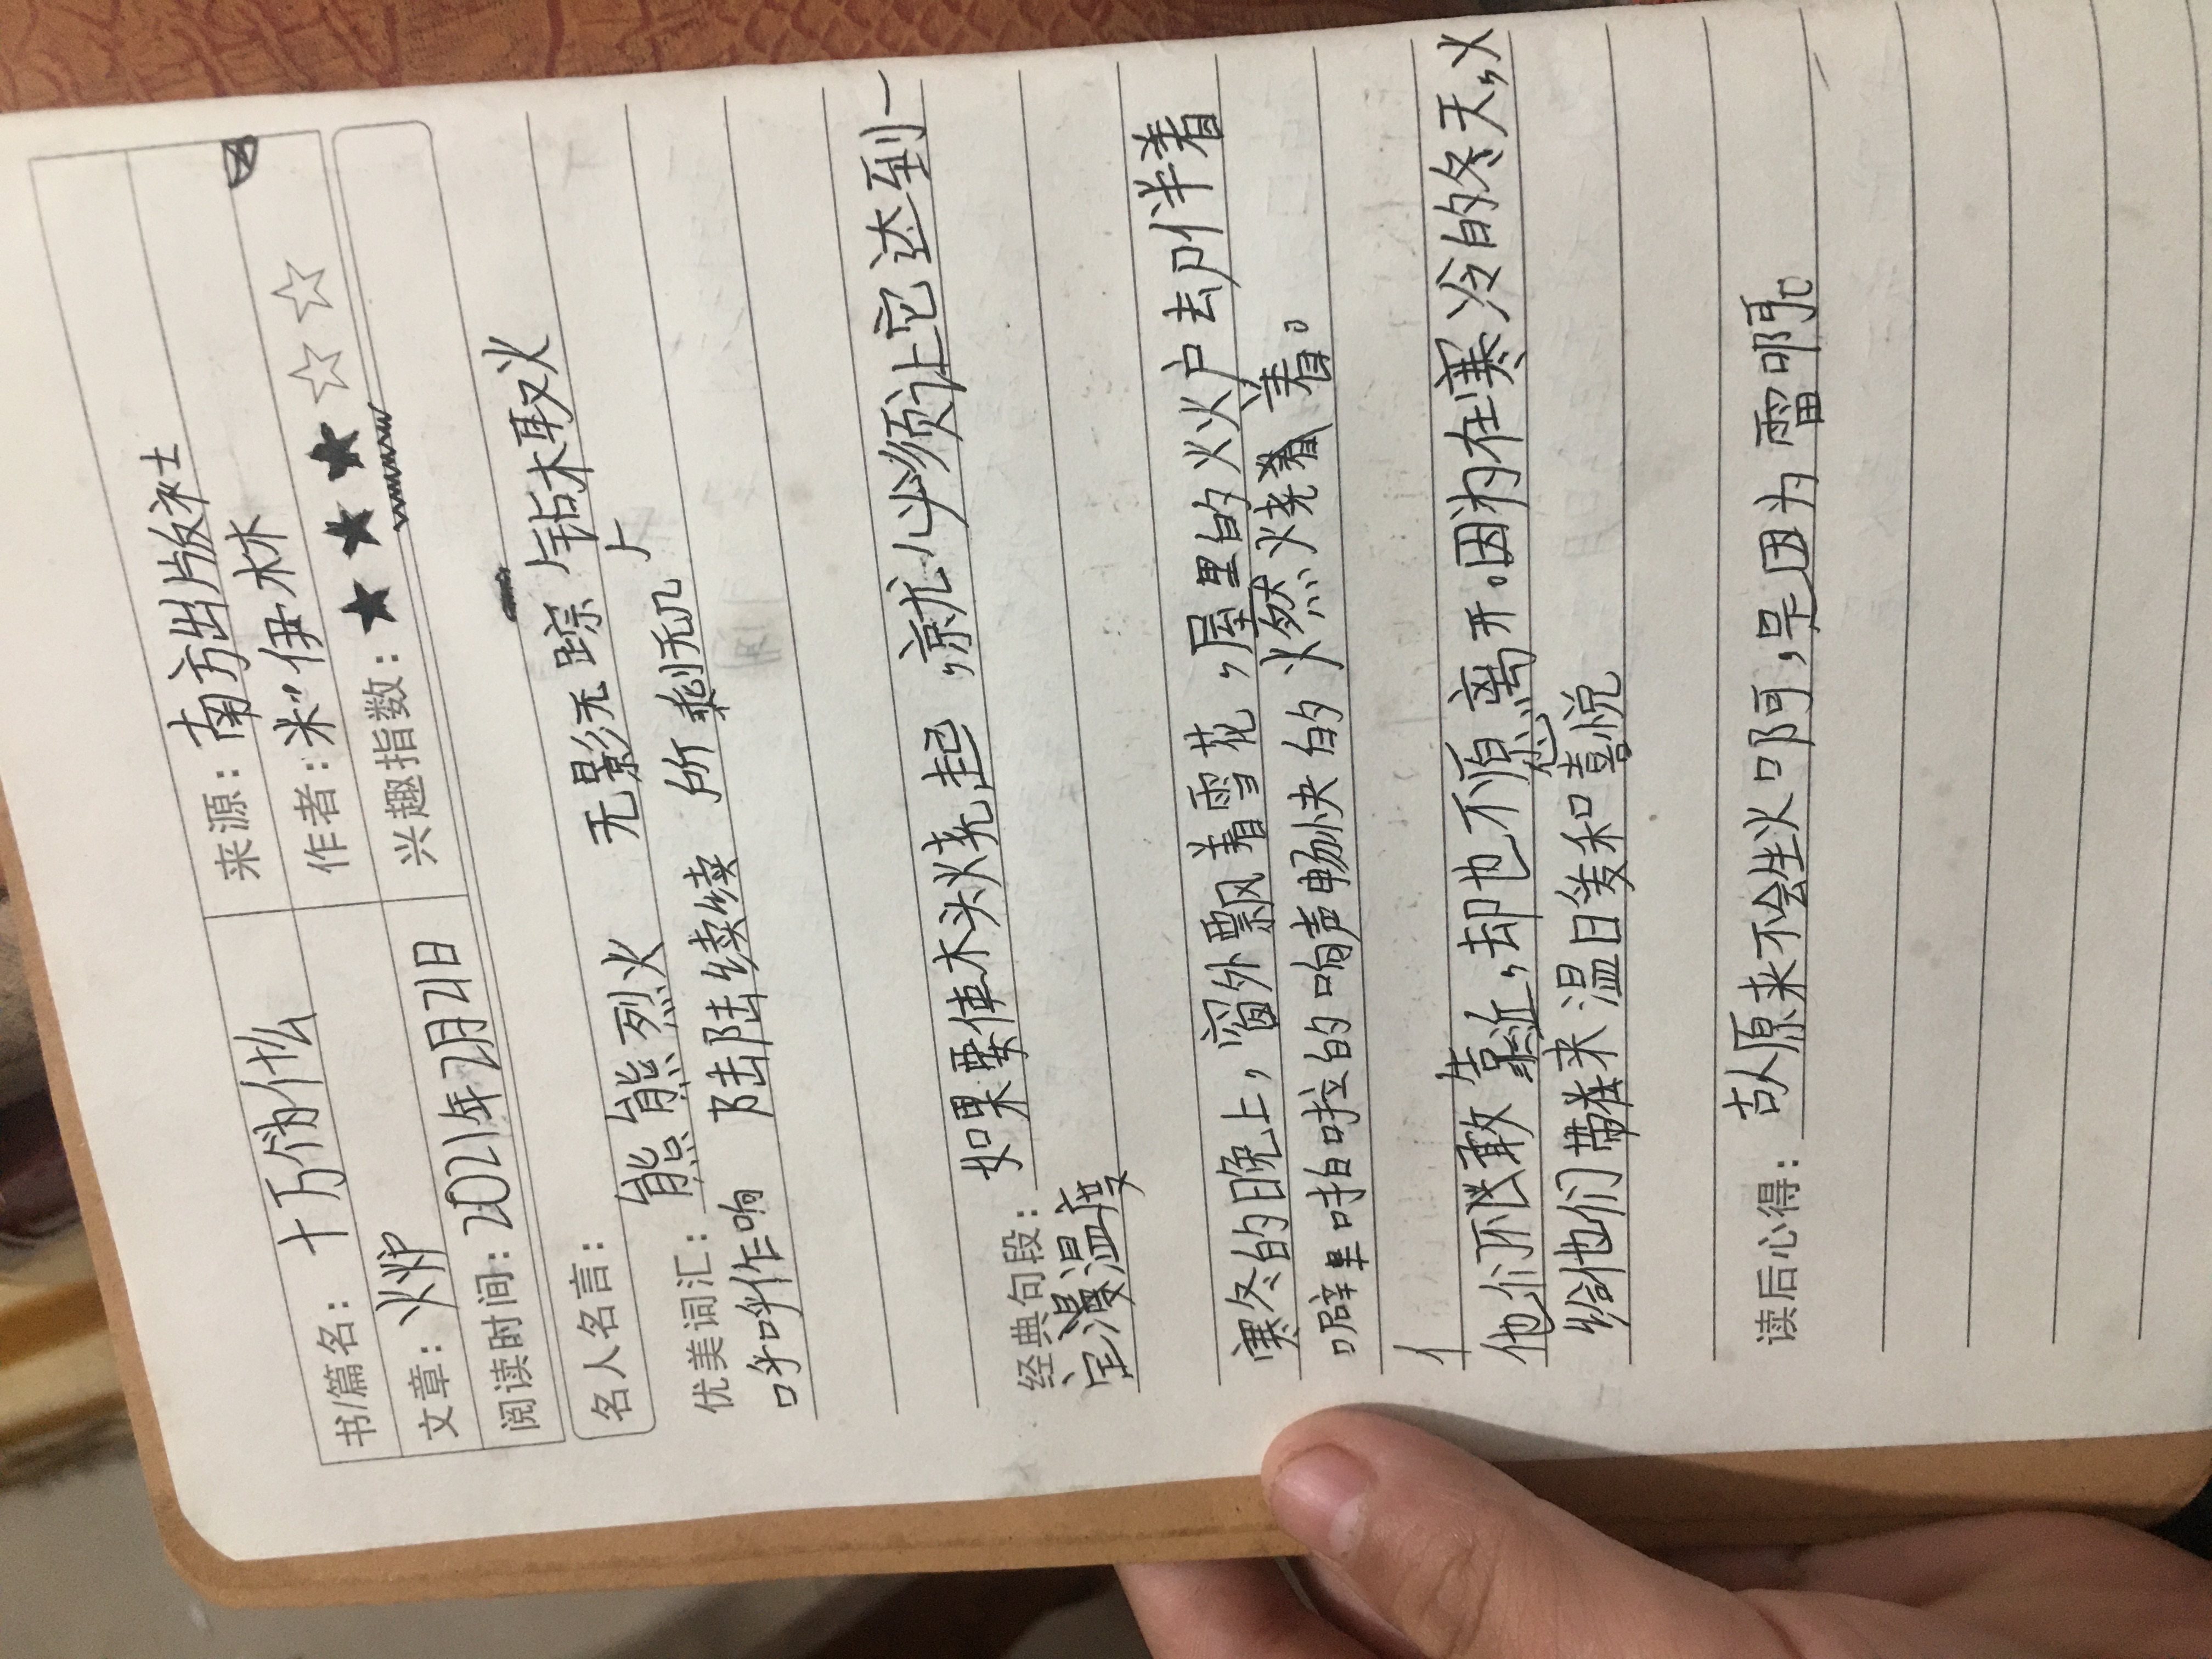 书/篇名： 十万个为什么 来源：南方出版社
文章：火炉 作者：米·伊林
阅读时间：2021年2月21日 兴趣指数：★★★☆☆
名人名言：
优美词汇：熊熊烈火 无影无踪 钻木取火
呼呼作响 陆陆续续 所剩无几
经典句段：如果要使木头烧起,就必须让它达到一
定温度
寒冬的晚上,窗外飘着雪花,屋里的火炉却伴着
噼里啪啦的响声畅快的燃烧着。
他们不敢靠近,却也不愿离开。因为在寒冷的冬天,火
给他们带来温暖和喜悦
读后心得：古人原来不会生火啊,是因为雷啊。